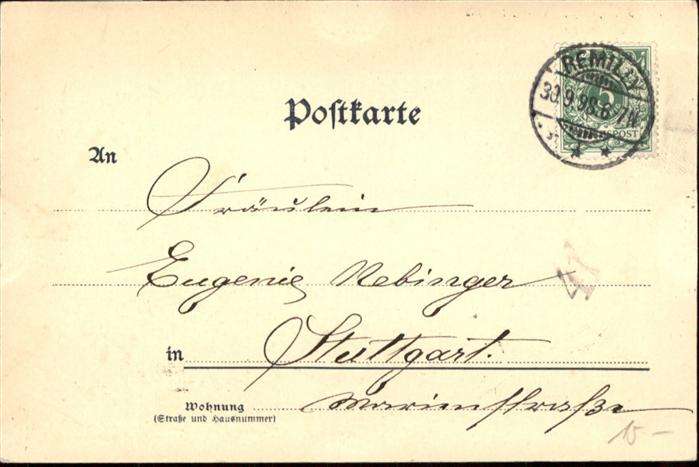 REMILLY
30.9.98.6-7N.
5
REICHSPOST
Postkarte
An
Fräulein
Eugenie Rebinger
in Stuttgart.
Wohnung Marienstraße
(Straße und Hausnummer)
15-